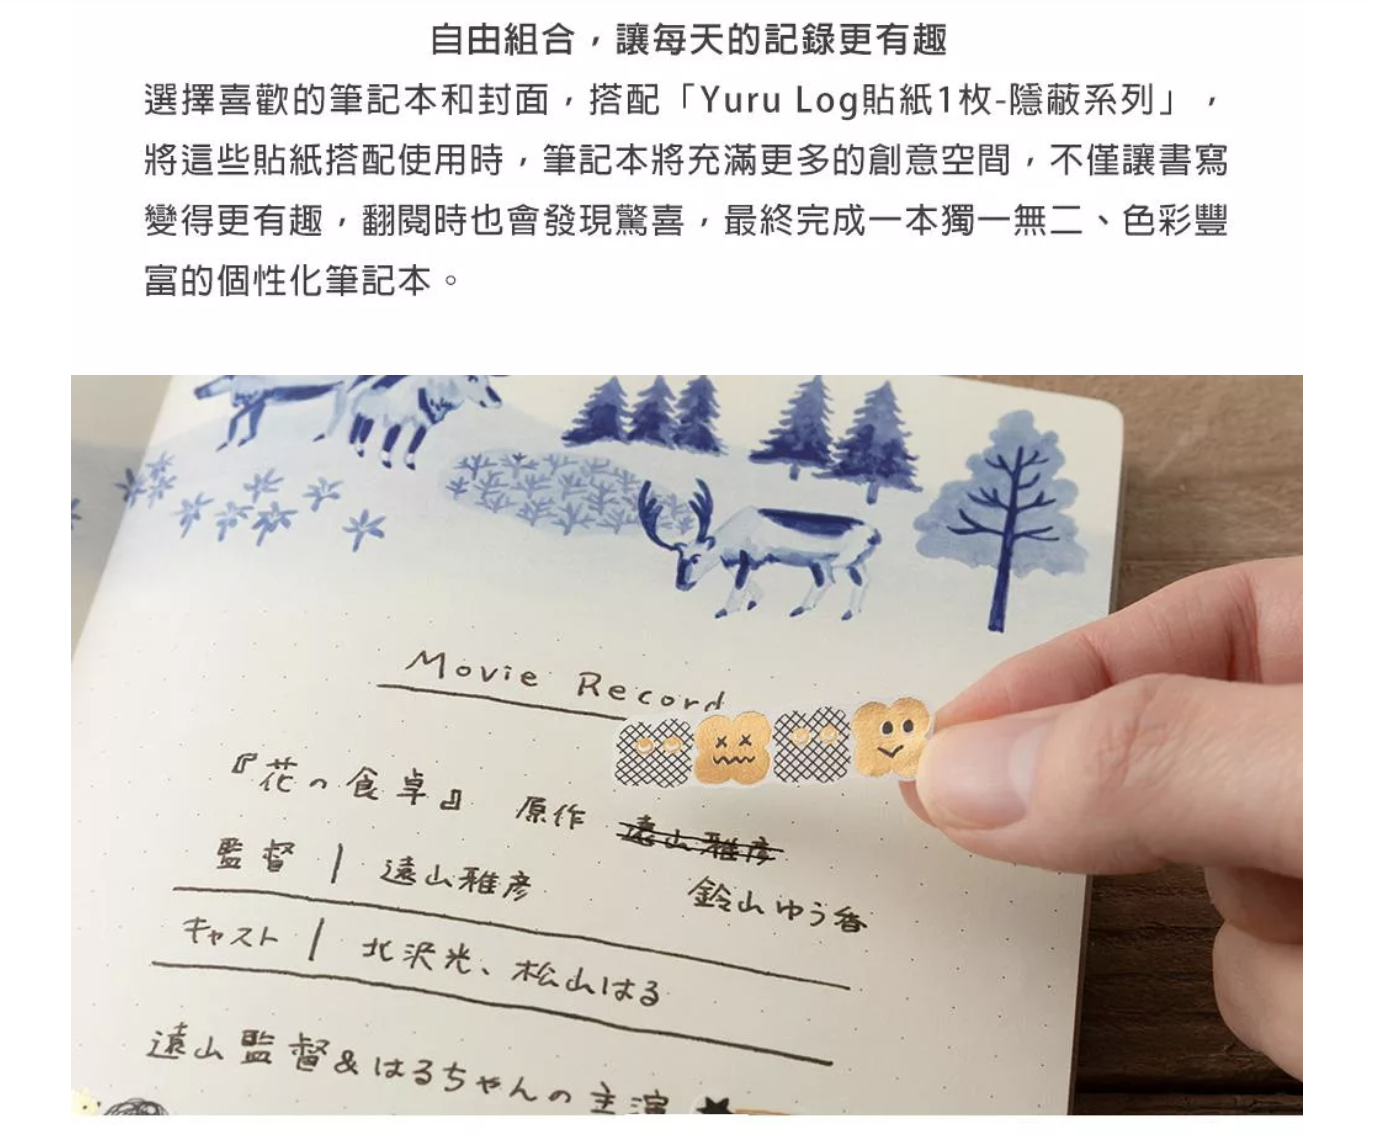 自由組合，讓每天的記錄更有趣
選擇喜歡的筆記本和封面，搭配「Yuru Log貼紙1枚-隱蔽系列」，
將這些貼紙搭配使用時，筆記本將充滿更多的創意空間，不僅讓書寫
變得更有趣，翻閱時也會發現驚喜，最終完成一本獨一無二、色彩豐
富的個性化筆記本。
Movie Record
『花の食卓』 原作 遠山雅彦
監督 | 遠山雅彦 鈴山ゆう香
キャスト | 北沢光、松山はる
遠山監督&はるちゃんの主演